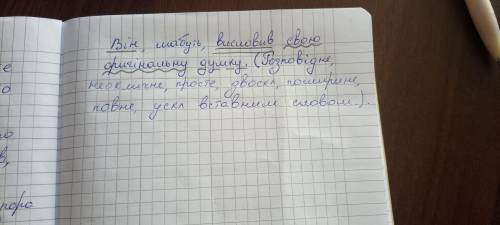 Він, мабуть, висловив свою
оригінальну думку. (Розповідне,
неоклічне, просте, двоскл, поширене,
повне, ускл вставним словом.).
ре
о
го
в,
пора